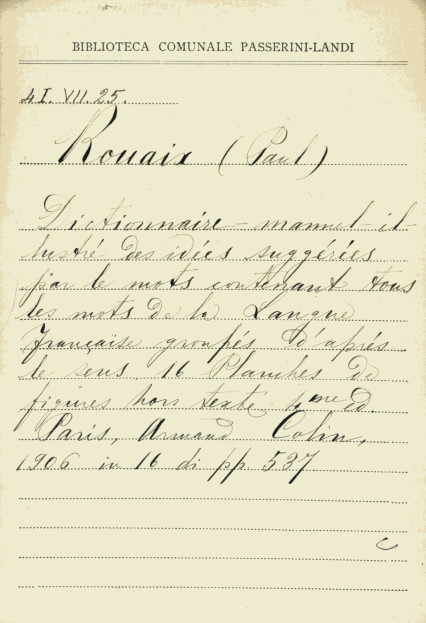 BIBLIOTECA COMUNALE PASSERINI-LANDI
4I. VII. 25.
Rouaix (Paul)
Dictionnaire-manuel-il-
lustré des idées suggérées
par le mots contenant tous
les mots de la Langue
Française groupés d'après
le sens. 16 Planches de
figures hors texte. 4me ed.
Paris, Armand Colin,
1906 in 16 di pp 537
C